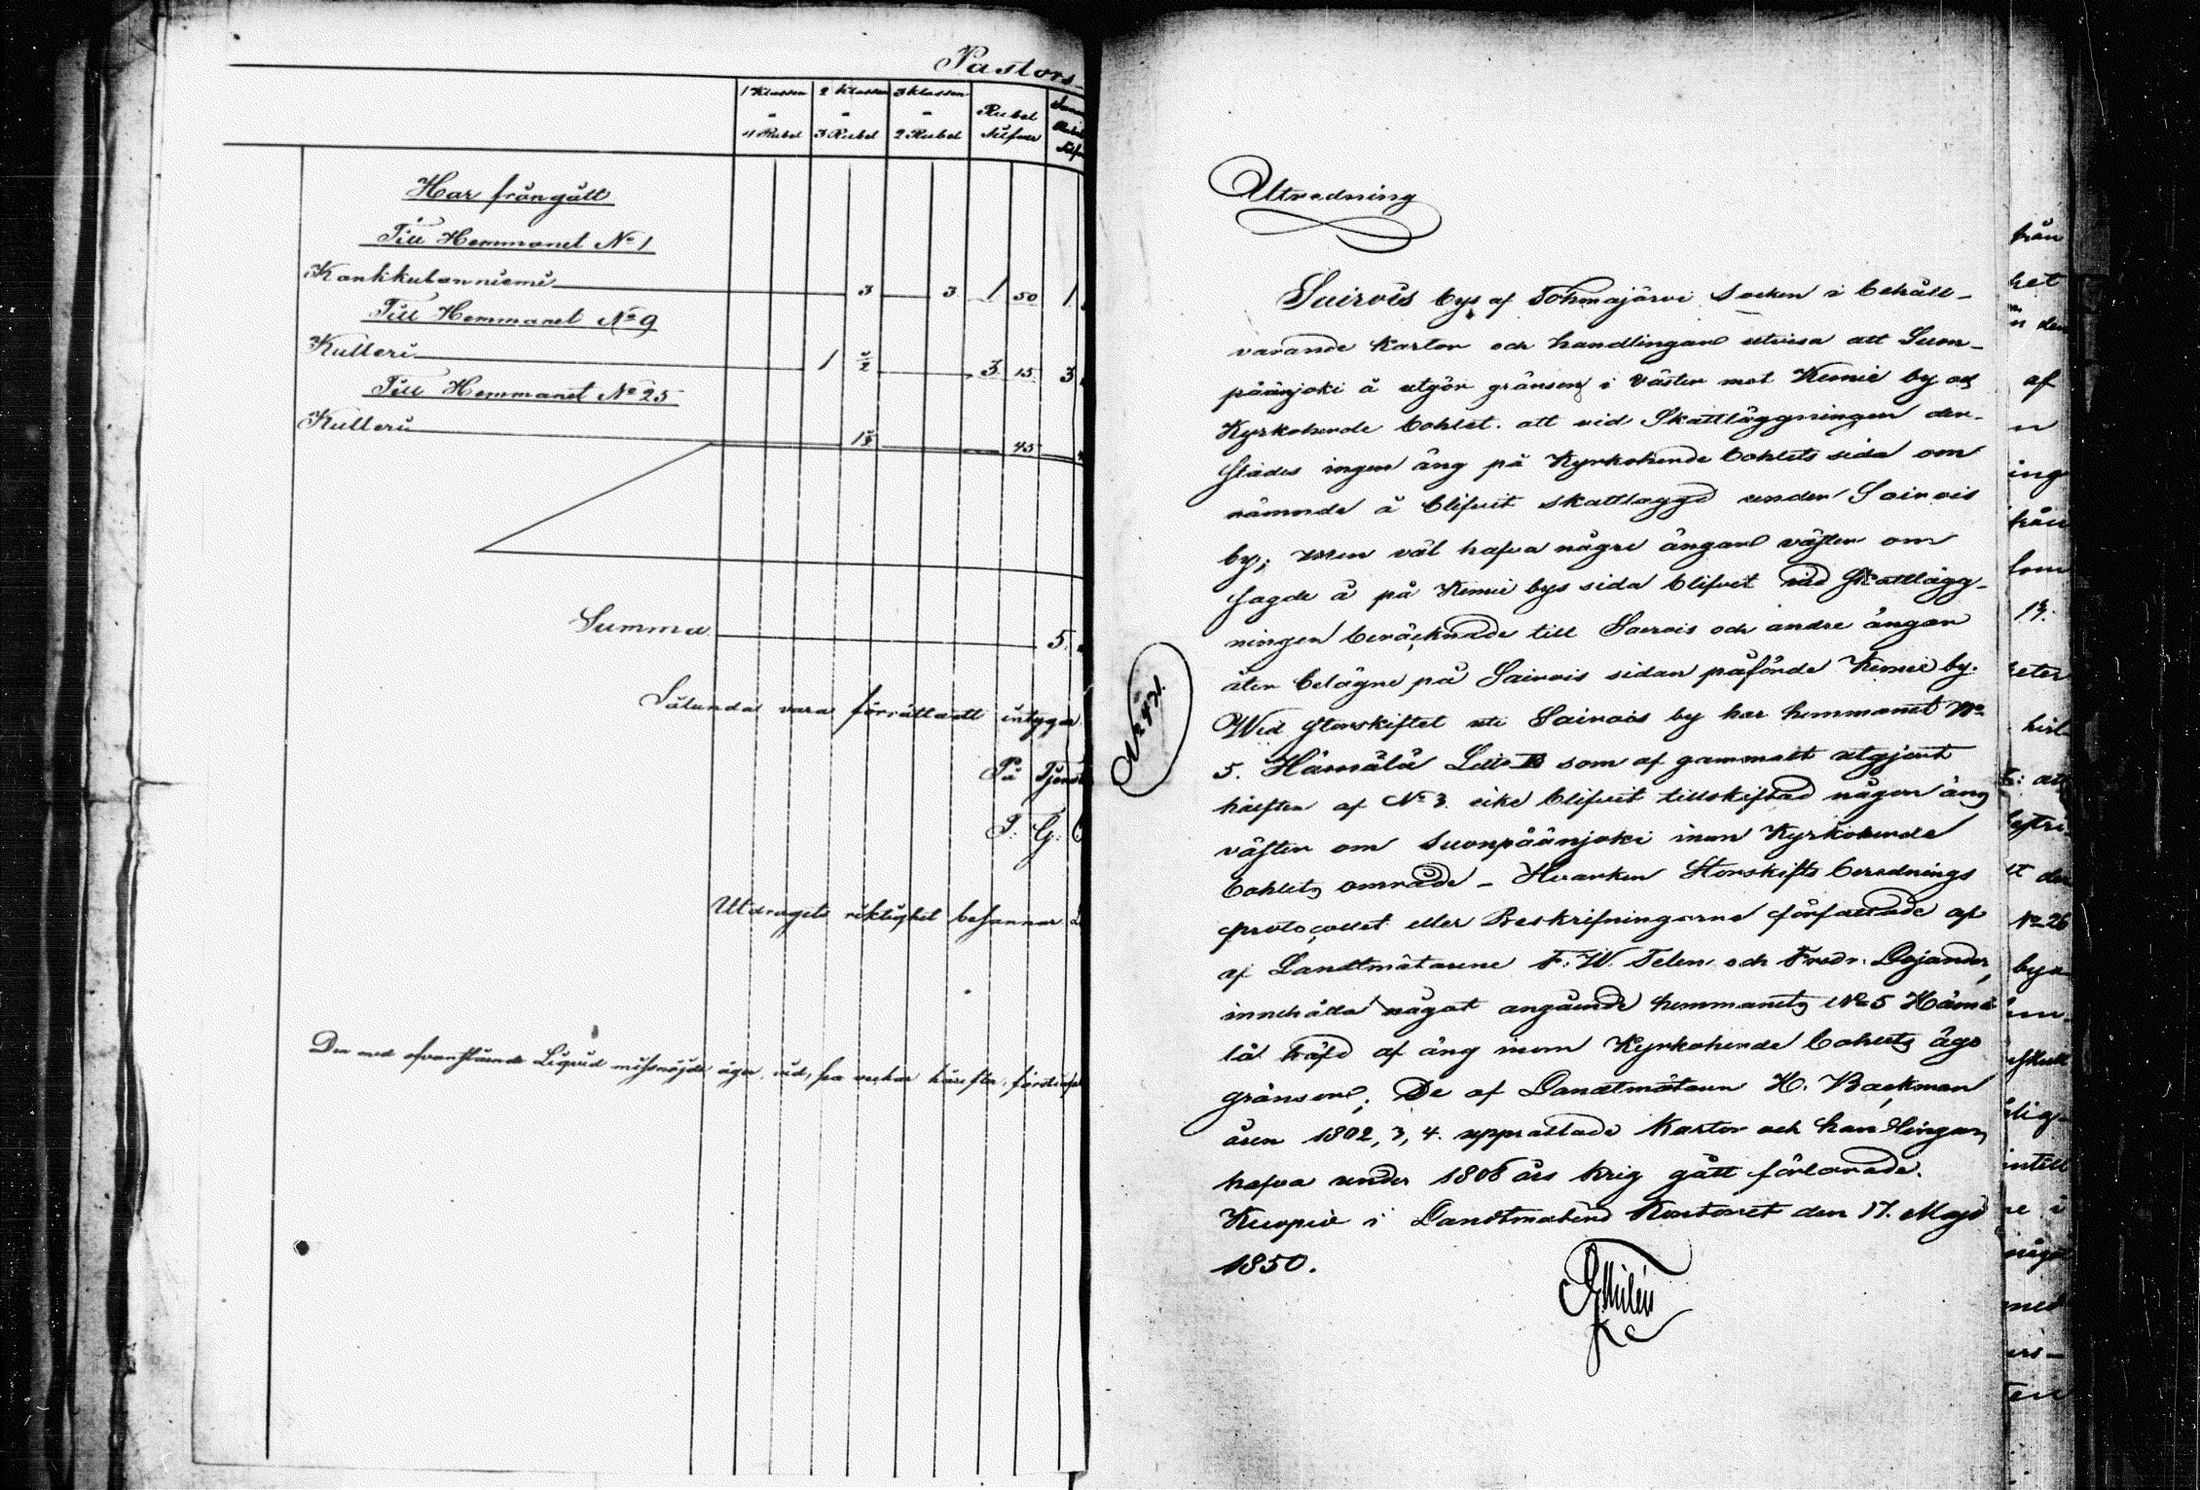 Pastors-
1 Klassen 2 Klassen 3 Klassen Rubel
4 Rubel 3 Rubel 2 Rubel Silfver
Har frångått
Till Hemmanet No 1
Kankkulanniemi 3 3 1 50 1
Till Hemmanet No 9
Kulleri 1 3 15 3
Till Hemmanet No 25
Kulleri 45
Summa 5.
Sålunda vara förrättadt intygar
På Tjenst
Utdragets riktighet besannar
Den med ofvanstående Liqvid missnöjde äger, vid, sea härefter
Utredning
Sairois bys af Tohmajärvi Socken i behåll-
varande Kartor och handlingar utvisa att Suon-
päänjoki å utgör gränsen i Väster mot Kemie by och
Kyrkoherde bohlet. att vid Skattläggningen der-
städes ingen äng på Kyrkoherde bohlets sida om
nämnde å blifvit skattlaggd under Sairois
by; men väl hafva någre ängar väster om
sagde å på Kemie bys sida blifvet vid Skattlägg-
ningen beräcknade till Sairois och andre ängar
åter belägne på Sairois sidan påförde Kemie by.
Wid storskiftet uti Sairois by har hemmanet No
5. Hämälä Litt. B som af gammalt utgjort
hälften af No 3. icke blifvit tillskiftad någon äng
väster om Suonpäänjoki inom Kyrkoherde
bohlets område - Hvarken Storskifts berednings
protocollet eller Beskrifningarne författade af
af Landtmätarene F. W. Telen och Fredr. Lojander,
innehålla något angående hemmanets No 5 Hämä
lä häfd af äng inom Kyrkoherde bohlets ägo
gränser; De af Landtmätaren H. Backman
åren 1802, 3, 4. upprättade Kartor och handlingar,
hafva under 1808 års krig gått förlorade.
Kuopio i Landtmäteri Kontoret den 17. Maji
1850.
från
het
den
af
n
ing
från
som
13.
heter
No 26
by
intill
i
något
med
ers-
ten